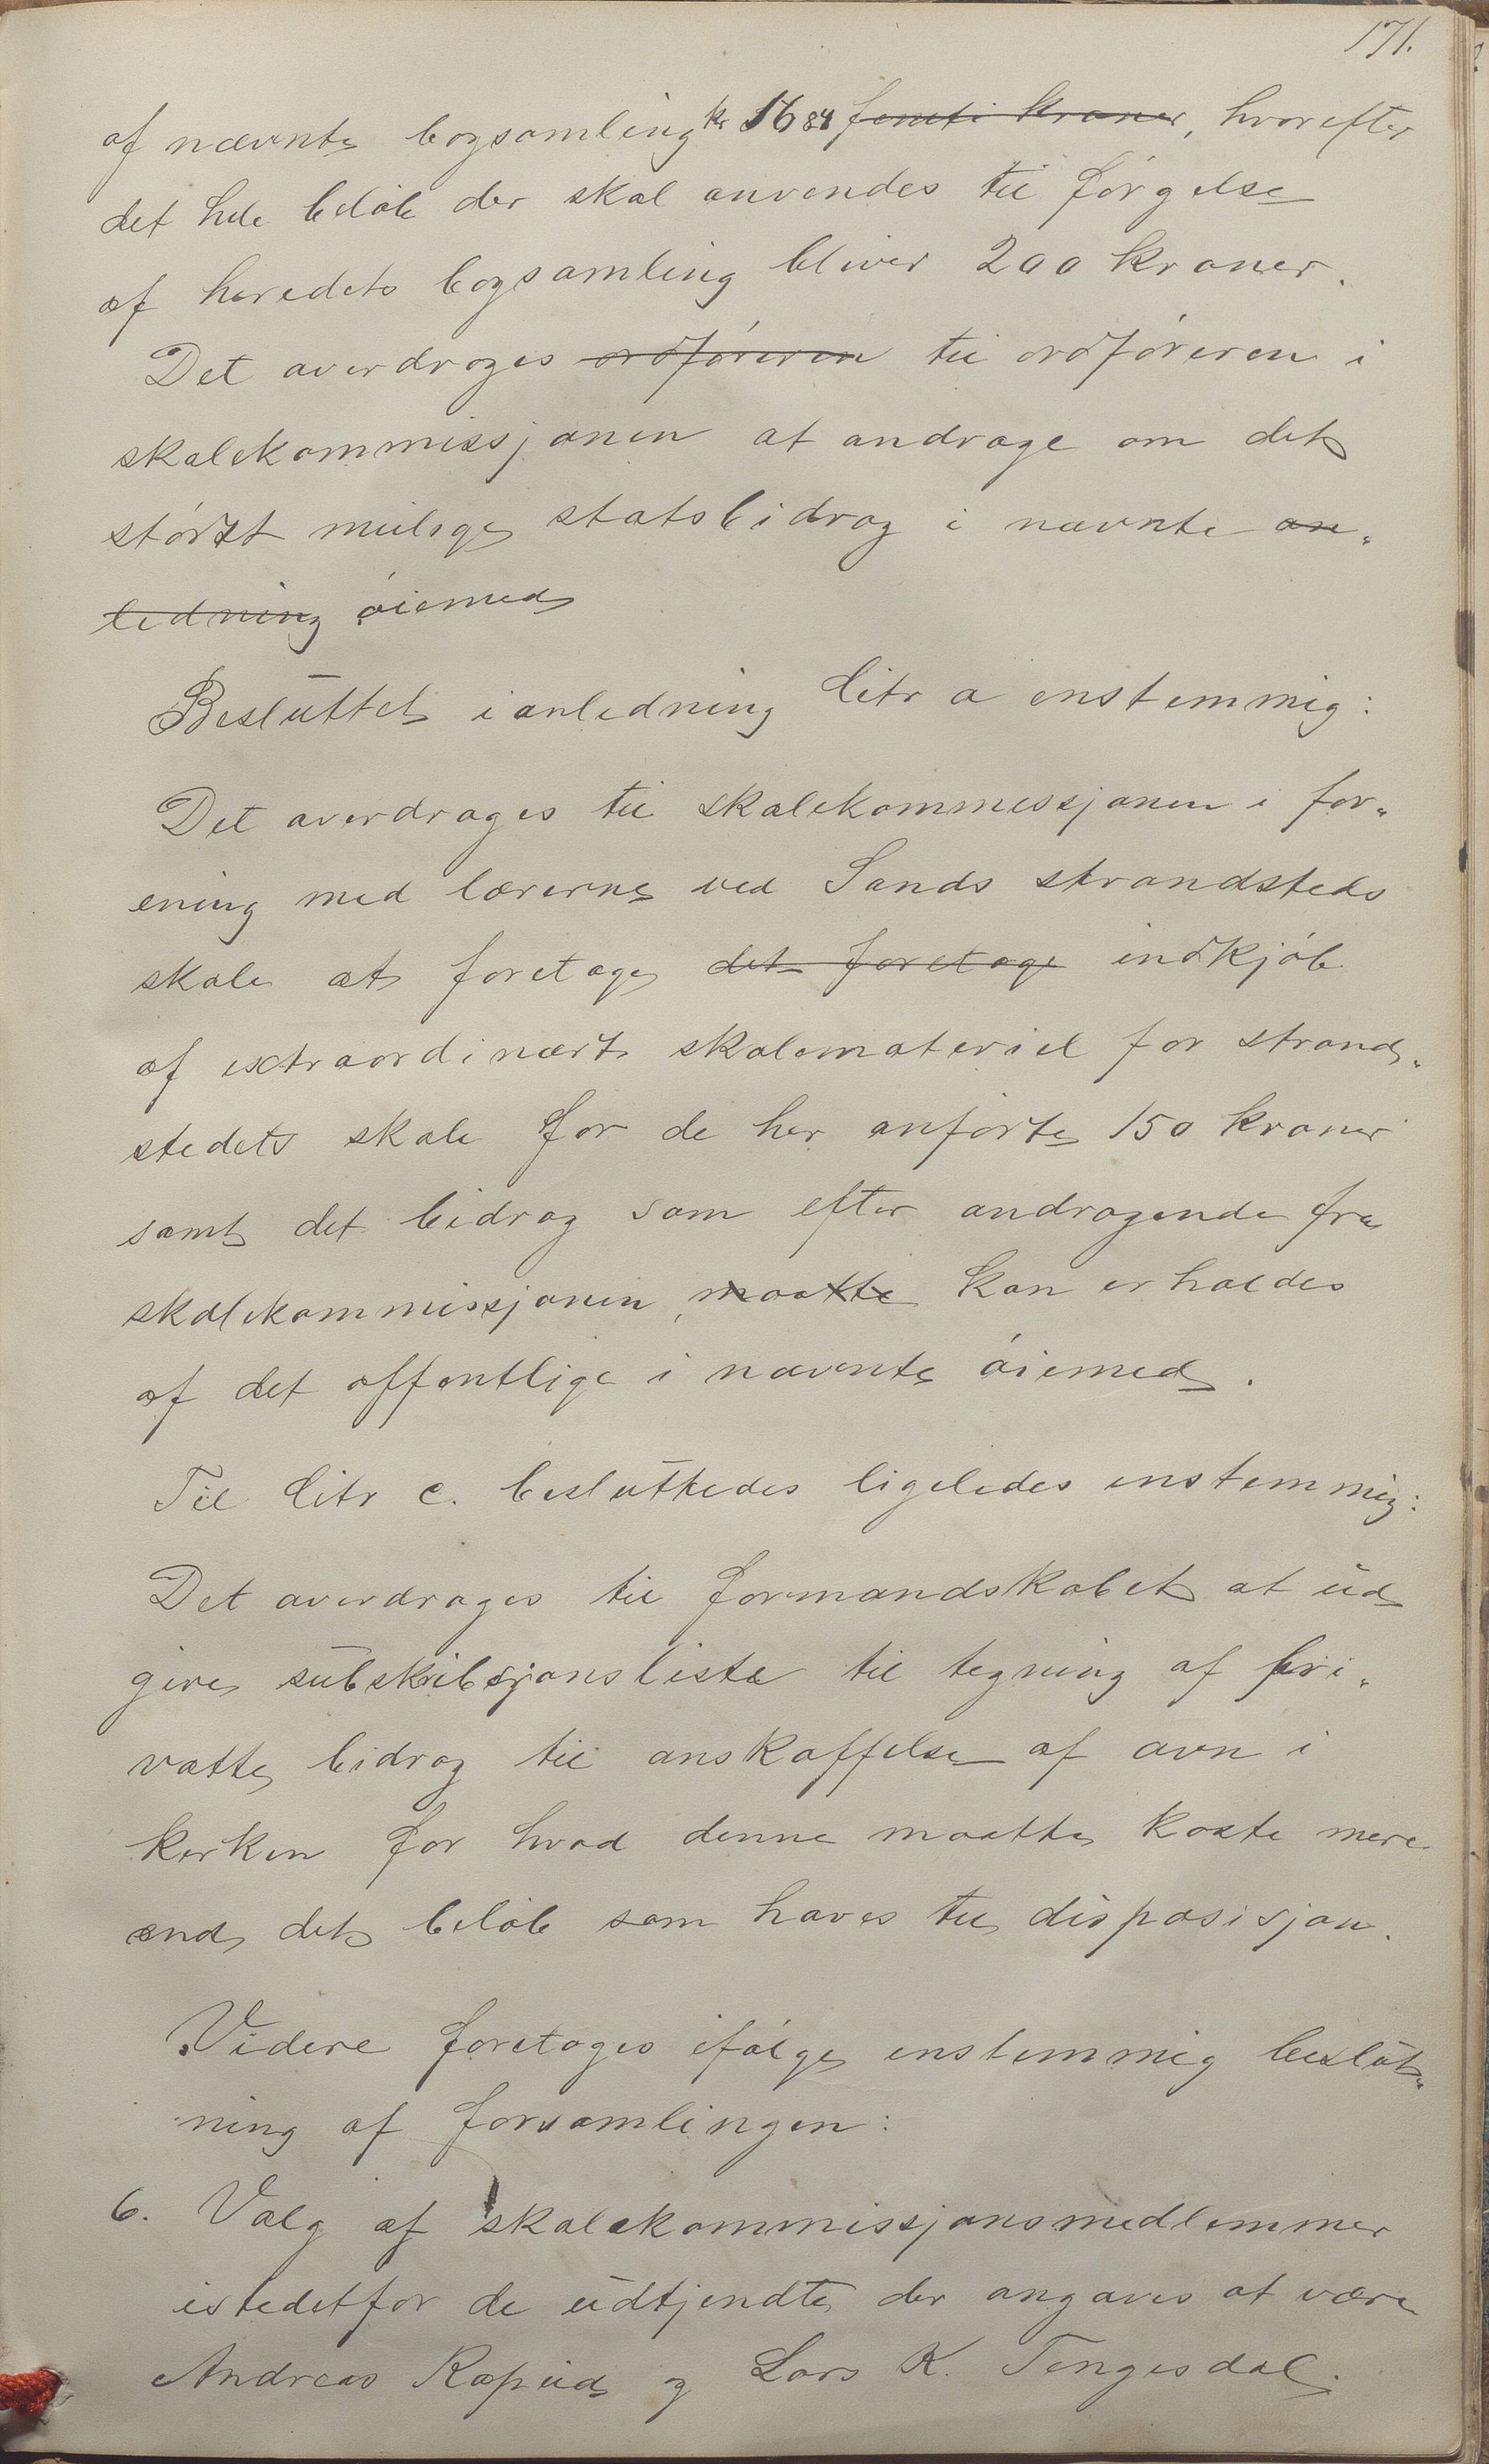 171.
af nævnte bogsamling kr 1684 femti kroner, hvorefter
det hele beløb der skal anvendes til førgelse
af heredets bogsamling bliver 200 kroner.
Det averdrages ordføreren til ordføreren i
skolekommissjonen at andrage om det
størst mulige statsbidrag i nævnte an„
ledning øiemed
Besluttet i anledning litr a enstemmig:
Det overdrages til skolekommissjonen i for„
ening med lærerne ved Sands strandsteds
skole at foretage det foretage indkjøb
af extraordinært skolemateriel for strand„
stedets skole for de her anførte 150 kroner
samt det bidrag som efter andragende fra
skolekommissjonen, maatte kan erholdes
af det offentlige i nævnte øiemed.
Til litr c. besluttedes ligeledes enstemmig:
Det overdrages til formandskabet at ud
give subskribsjonsliste til tegning af pri„
vatte bidrag til anskaffelse af ovn i
kerken for hvad denne maatte koste mere
end det beløb som haves til disposisjon.
Videre foretoges ifølge enstemmig beslut„
ning af forsamlingen:
6. Valg af skolekommissjonsmedlemmer
istedetfor de udtjendte der angaves at være
Andreas Rapud og Lars K. Tengesdal.